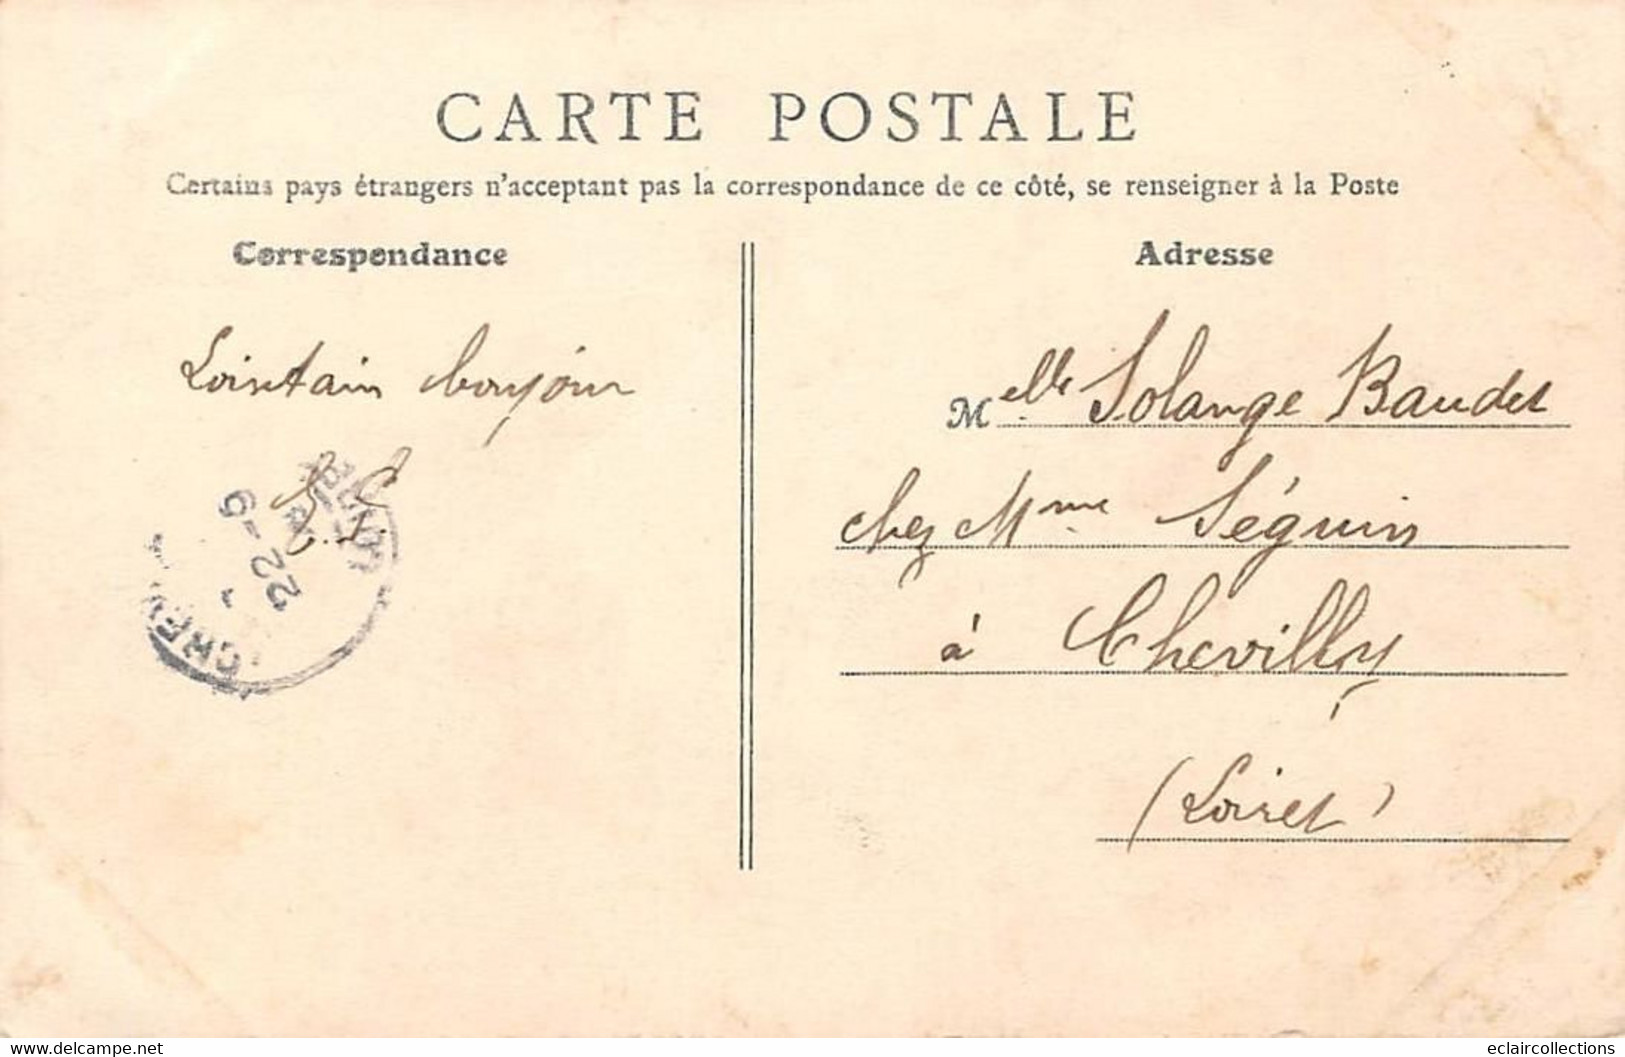 CARTE POSTALE
Certains pays étrangers n'acceptent pas la correspondance de ce côté, se renseigner à la Poste
Correspondance
Lointain bonjour
22 - 9
Adresse
Melle Solange Baudet
chez Mme Séguin
à Chevilly
(Loiret)
www.delcampe.net
eclaircollections